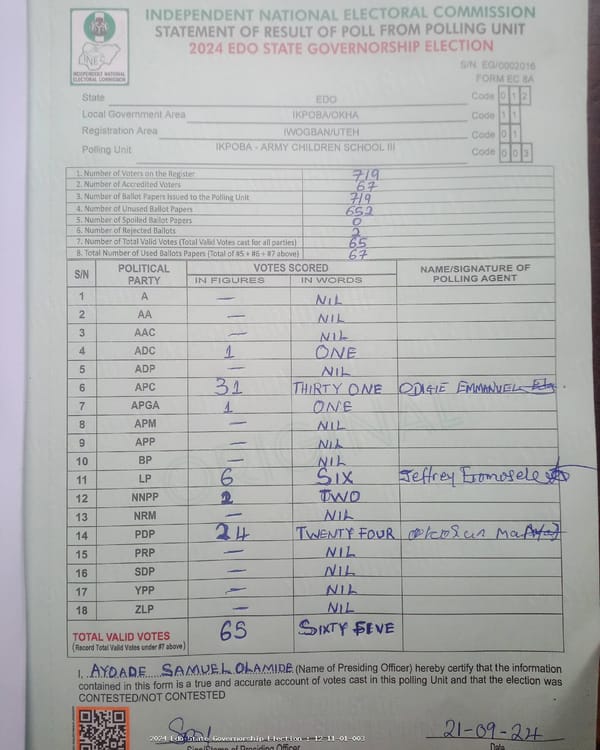 INDEPENDENT NATIONAL ELECTORAL COMMISSION
STATEMENT OF RESULT OF POLL FROM POLLING UNIT
2024 EDO STATE GOVERNORSHIP ELECTION
INEC
INDEPENDENT NATIONAL
ELECTORAL COMMISSION
S/N: EG/0002016
FORM EC 8A
State EDO Code 0 1 2
Local Government Area IKPOBA/OKHA Code 1 1
Registration Area IWOGBAN/UTEH Code 0 1
Polling Unit IKPOBA - ARMY CHILDREN SCHOOL III Code 0 0 3
1. Number of Voters on the Register 719
2. Number of Accredited Voters 67
3. Number of Ballot Papers Issued to the Polling Unit 719
4. Number of Unused Ballot Papers 652
5. Number of Spoiled Ballot Papers 0
6. Number of Rejected Ballots 2
7. Number of Total Valid Votes (Total Valid Votes cast for all parties) 65
8. Total Number of Used Ballots Papers (Total of #5 + #6 + #7 above) 67
S/N POLITICAL PARTY VOTES SCORED NAME/SIGNATURE OF POLLING AGENT
IN FIGURES IN WORDS
1 A — NIL
2 AA — NIL
3 AAC — NIL
4 ADC 1 ONE
5 ADP — NIL
6 APC 31 THIRTY ONE ODIGIE EMMANUEL
7 APGA 1 ONE
8 APM — NIL
9 APP — NIL
10 BP — NIL
11 LP 6 SIX Jeffrey Eromosele
12 NNPP 2 TWO
13 NRM — NIL
14 PDP 24 TWENTY FOUR
15 PRP — NIL
16 SDP — NIL
17 YPP — NIL
18 ZLP — NIL
TOTAL VALID VOTES 65 SIXTY FIVE
(Record Total Valid Votes under #7 above)
ORIGINAL
I, AYODADE SAMUEL OLAMIDE (Name of Presiding Officer) hereby certify that the information
contained in this form is a true and accurate account of votes cast in this polling Unit and that the election was
CONTESTED/NOT CONTESTED
21-09-24
2024 Edo State Governorship Election : 12-11-01-003
Sign/Stamp of Presiding Officer Date